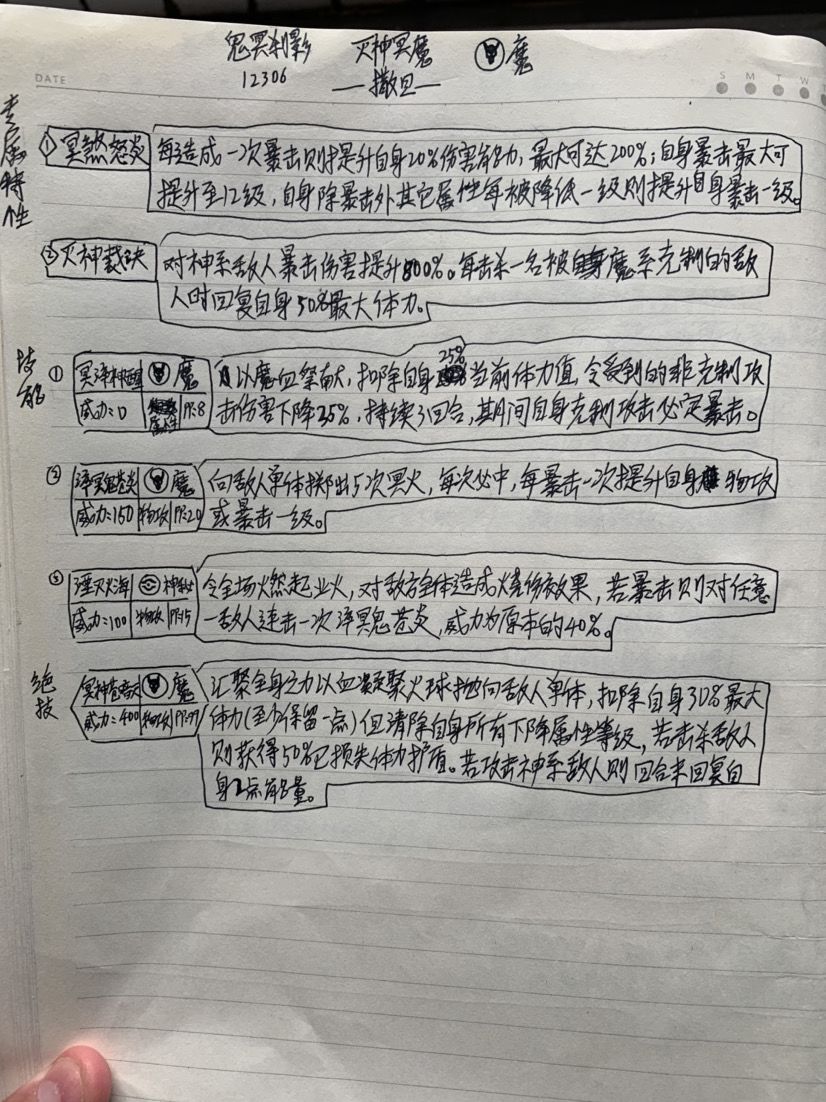 鬼冥刹影 灭神冥魔 魔
12306 —撒旦—
DATE
S M T W T
专属特性
① 冥煞怒炎 每造成一次暴击则提升自身20%伤害能力,最大可达200%;自身暴击最大可
提升至12级,自身除暴击外其它属性每被降低一级则提升自身暴击一级。
② 灭神裁决 对神系敌人暴击伤害提升800%。每击杀一名被魔系克制的敌
人时回复自身50%最大体力。
技能
① 魔 以魔血祭献,扣除自身25%当前体力值,令受到的非克制攻
威力=0 属性 PP:8 击伤害下降25%,持续3回合,其间自身克制攻击必定暴击。
② 泽冥鬼苍炎 魔 向敌人单体掷出5次冥火,每次必中,每暴击一次提升自身物攻
威力=150 物攻 PP=20 或暴击一级。
③ 湮灭火海 神秘 令全场火燃起业火,对敌方全体造成烧伤效果,若暴击则对任意
威力=100 物攻 PP:15 一敌人连击一次泽冥鬼苍炎,威力为原本的40%。
绝技
魔 汇聚全身之力以血凝聚火球抛向敌人单体,扣除自身30%最大
威力=400 物攻 PP:99 体力(至少保留一点)但清除自身所有下降属性等级,若击杀敌人
则获得50%已损失体力护盾。若攻击神系敌人则回合末回复自
身2点能量。